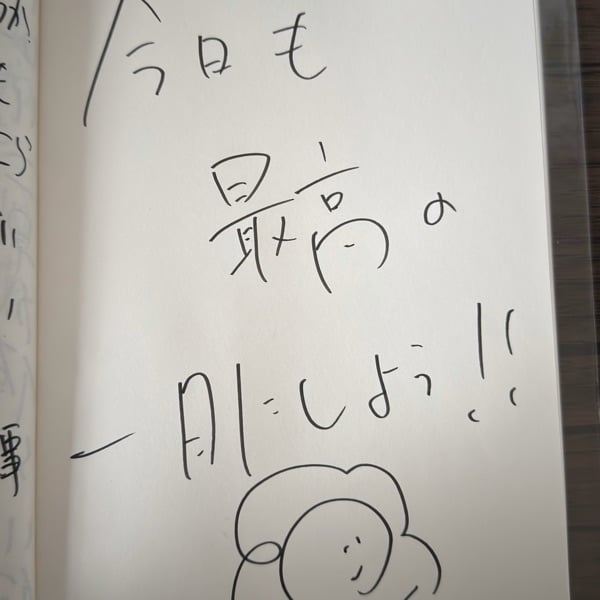 今日も
最高の
一日にしよう!!